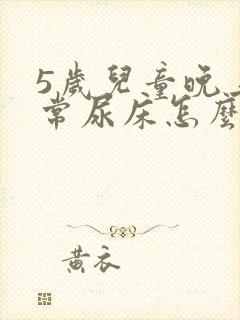 5歲兒童晚上
常尿床怎麼
黃衣